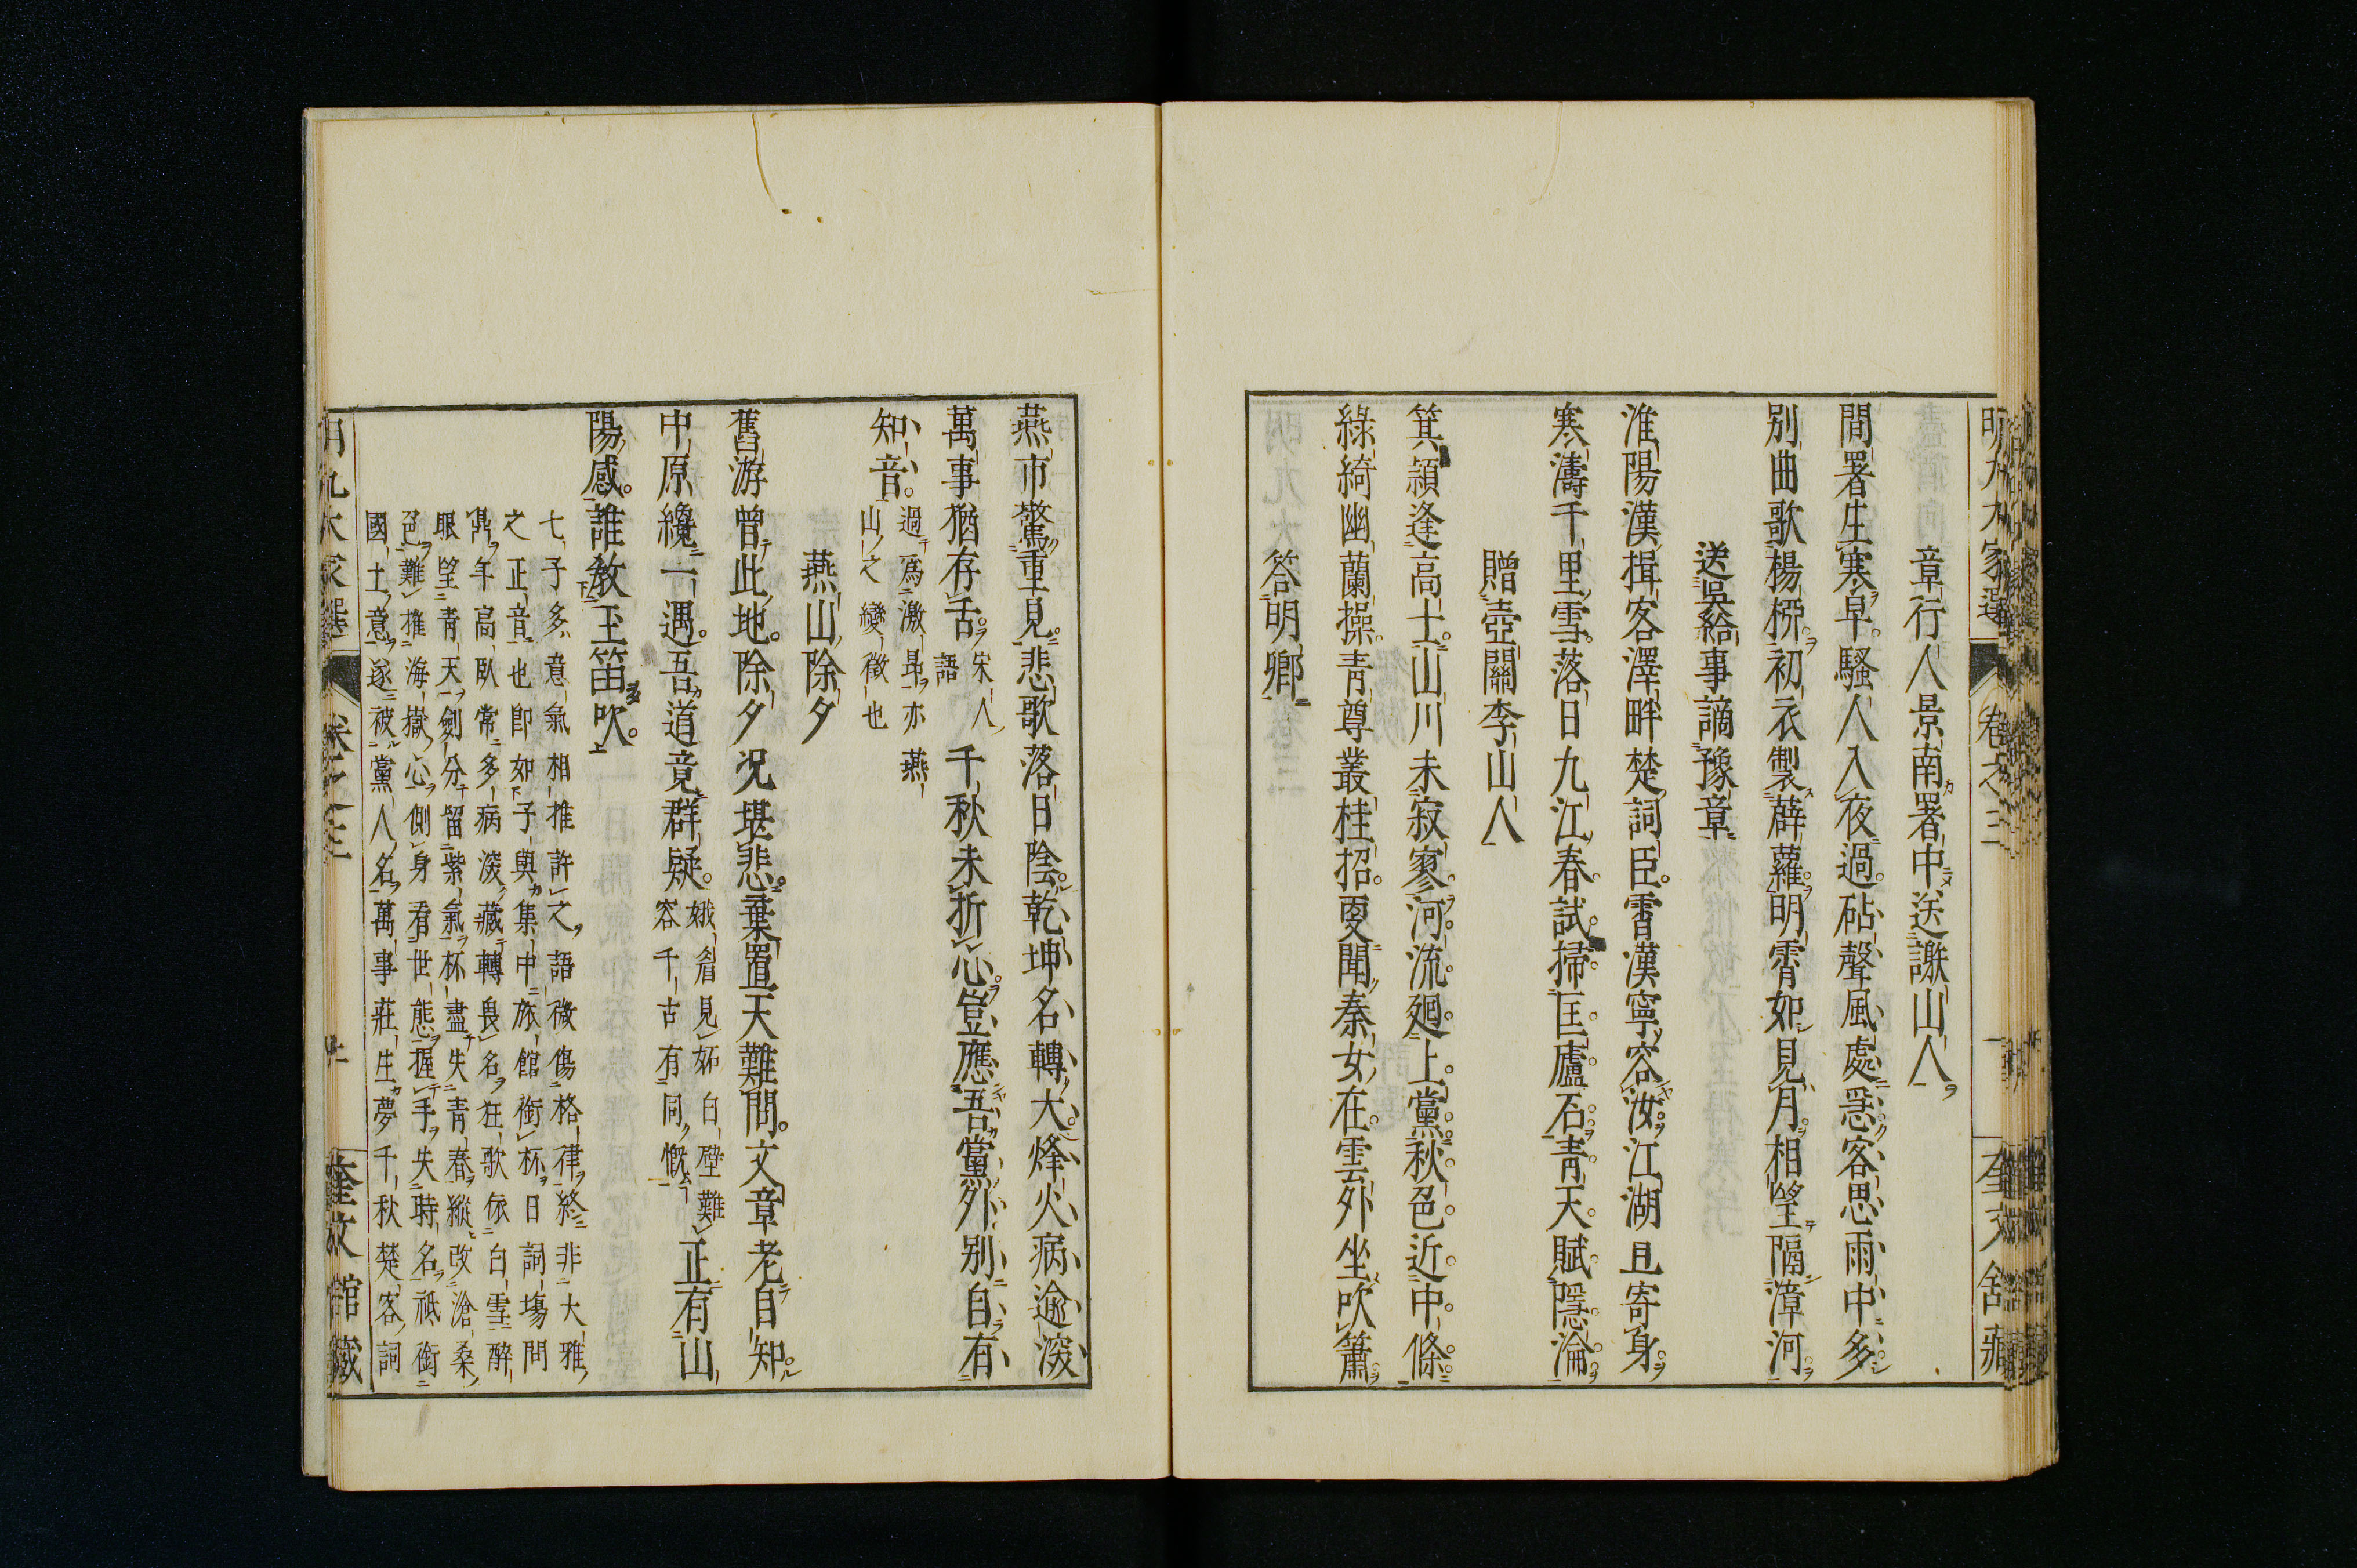 明九大家選
卷之三
奎文舘藏
章行人景南署中送謝山人
間署生寒早騷人入夜過砧聲風處急客思雨中多
別曲歌楊柳初衣製薜蘿明霄如見月相望隔漳河
送吳給事謫豫章
淮陽漢揖客澤畔楚詞臣霄漢寧容汝江湖且寄身
寒濤千里雪落日九江春試掃匡廬石青天賦隱淪
贈壺關李山人
箕頴逢高士山川未寂寥河流廻上黨秋色近中條
綠綺幽蘭操青尊叢桂招更聞秦女在雲外坐吹簫
答明卿
燕市驚重見悲歌落日陰乾坤名轉大烽火病逾深
萬事猶存舌
宋人
語
千秋未折心豈應吾黨外別自有
知音
過爲激昂亦燕
山之變徵也
燕山除夕
舊游曾此地除夕況堪悲棄置天難問文章老自知
中原纔一遇吾道竟群疑
娥眉見妬白璧難
容千古有同慨
正有山
陽感誰敎玉笛吹
七子多意氣相推許之語微傷格律終非大雅
之正音也卽如子與集中旅館銜杯日詞塲問
雋年高臥常多病深藏轉畏名狂歌依白雪醉
眼望青天劍分留紫氣杯盡失青春縱改滄桑
色難摧海嶽心側身看世態握手失時名祇銜
國士意遂被黨人名萬事莊生夢千秋楚客詞
明九大家選
卷之三
奎文舘藏